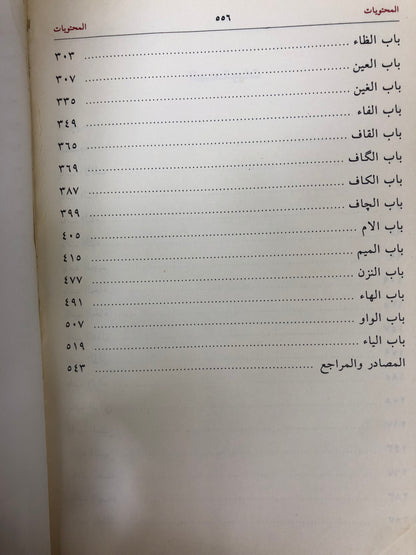 المحتويات ٥٥٦ المحتويات
باب الظاء ٣٠٣
باب العين ٣٠٧
باب الغين ٣٣٥
باب الفاء ٣٤٩
باب القاف ٣٦٥
باب الگاف ٣٦٩
باب الكاف ٣٨٧
باب الچاف ٣٩٩
باب الام ٤٠٥
باب الميم ٤١٥
باب النزن ٤٧٧
باب الهاء ٤٩١
باب الواو ٥٠٧
باب الياء ٥١٩
المصادر والمراجع ٥٤٣